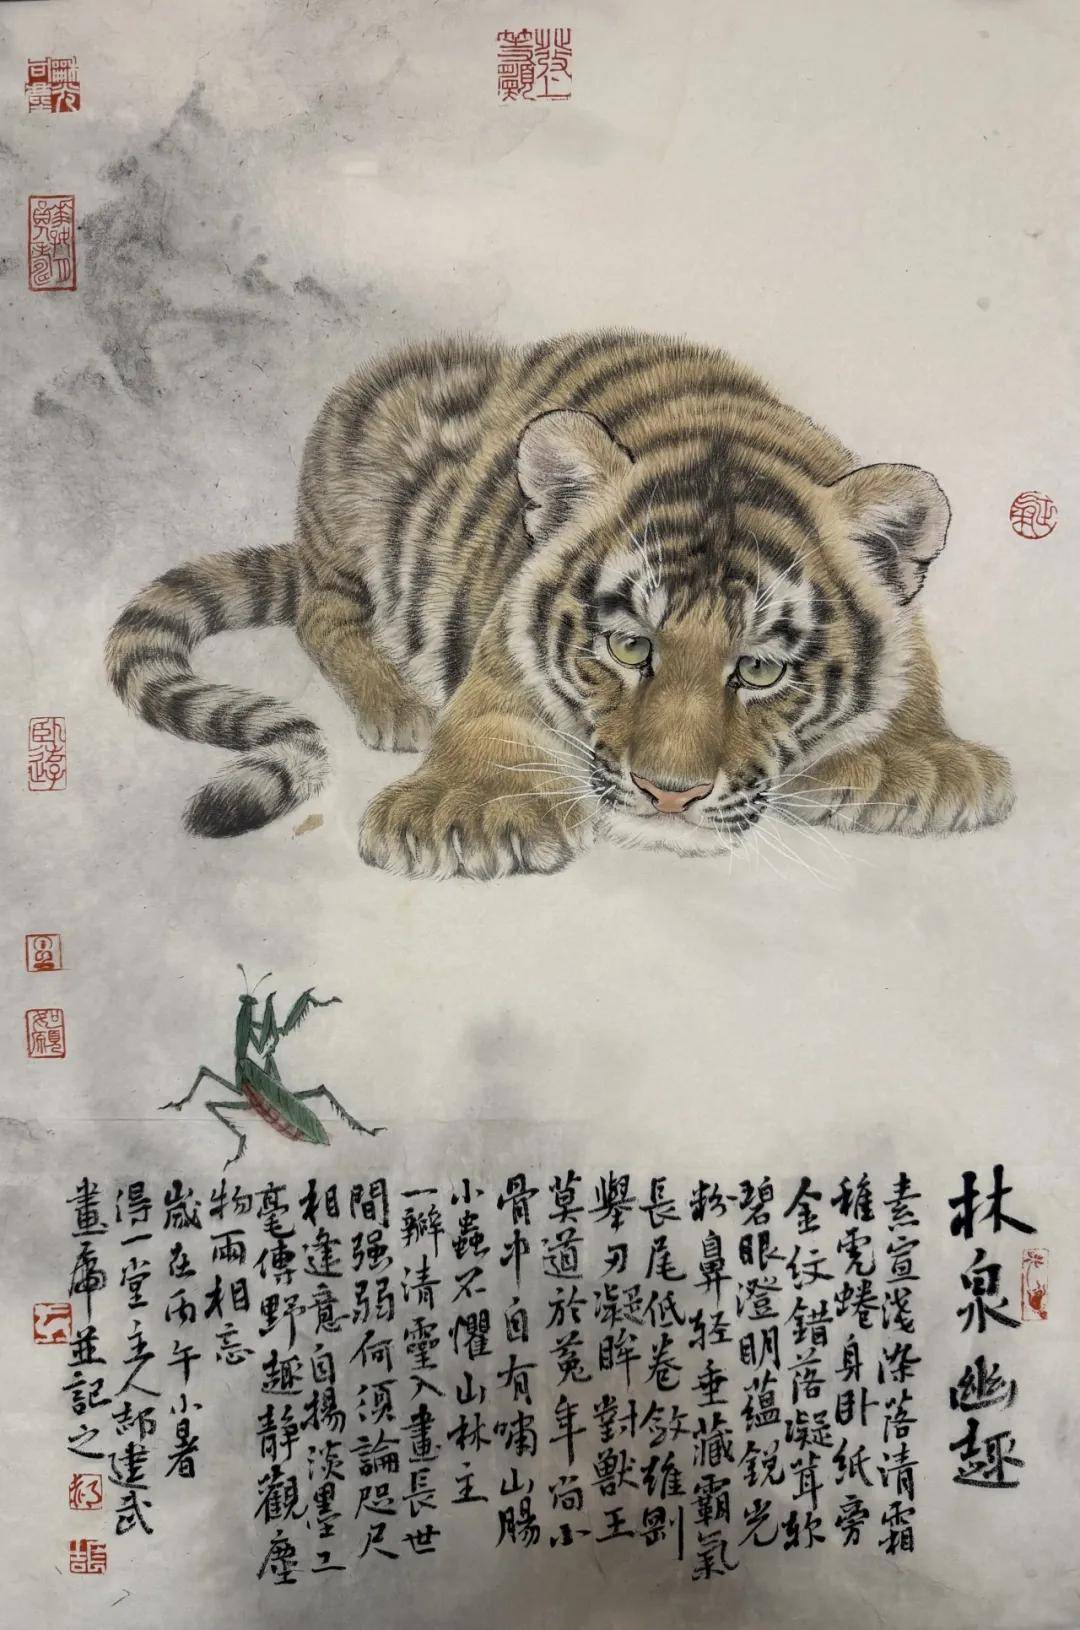 林泉幽趣
素宣浅染落清霜
稚虎蜷身卧紙旁
金纹錯落凝茸软
碧眼澄明蕴銳光
粉鼻轻垂藏霸氣
長尾低卷敛雄剛
舉刃凝眸對獸王
莫道於菟年尚小
骨中自有嘯山腸
小蟲不懼山林主
一瓣清靈入畫長世
間强弱何須論咫尺
相逢意自揚淡墨工
毫傳野趣静觀塵
物兩相忘
歲在丙午小暑
得一堂主人郝建武
畫虎並記之
如願